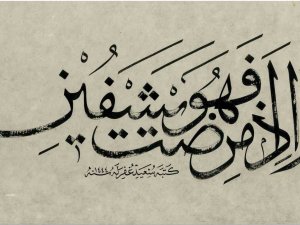 اذا مرضت فهو يشفين
كتبه سعيد غفر له